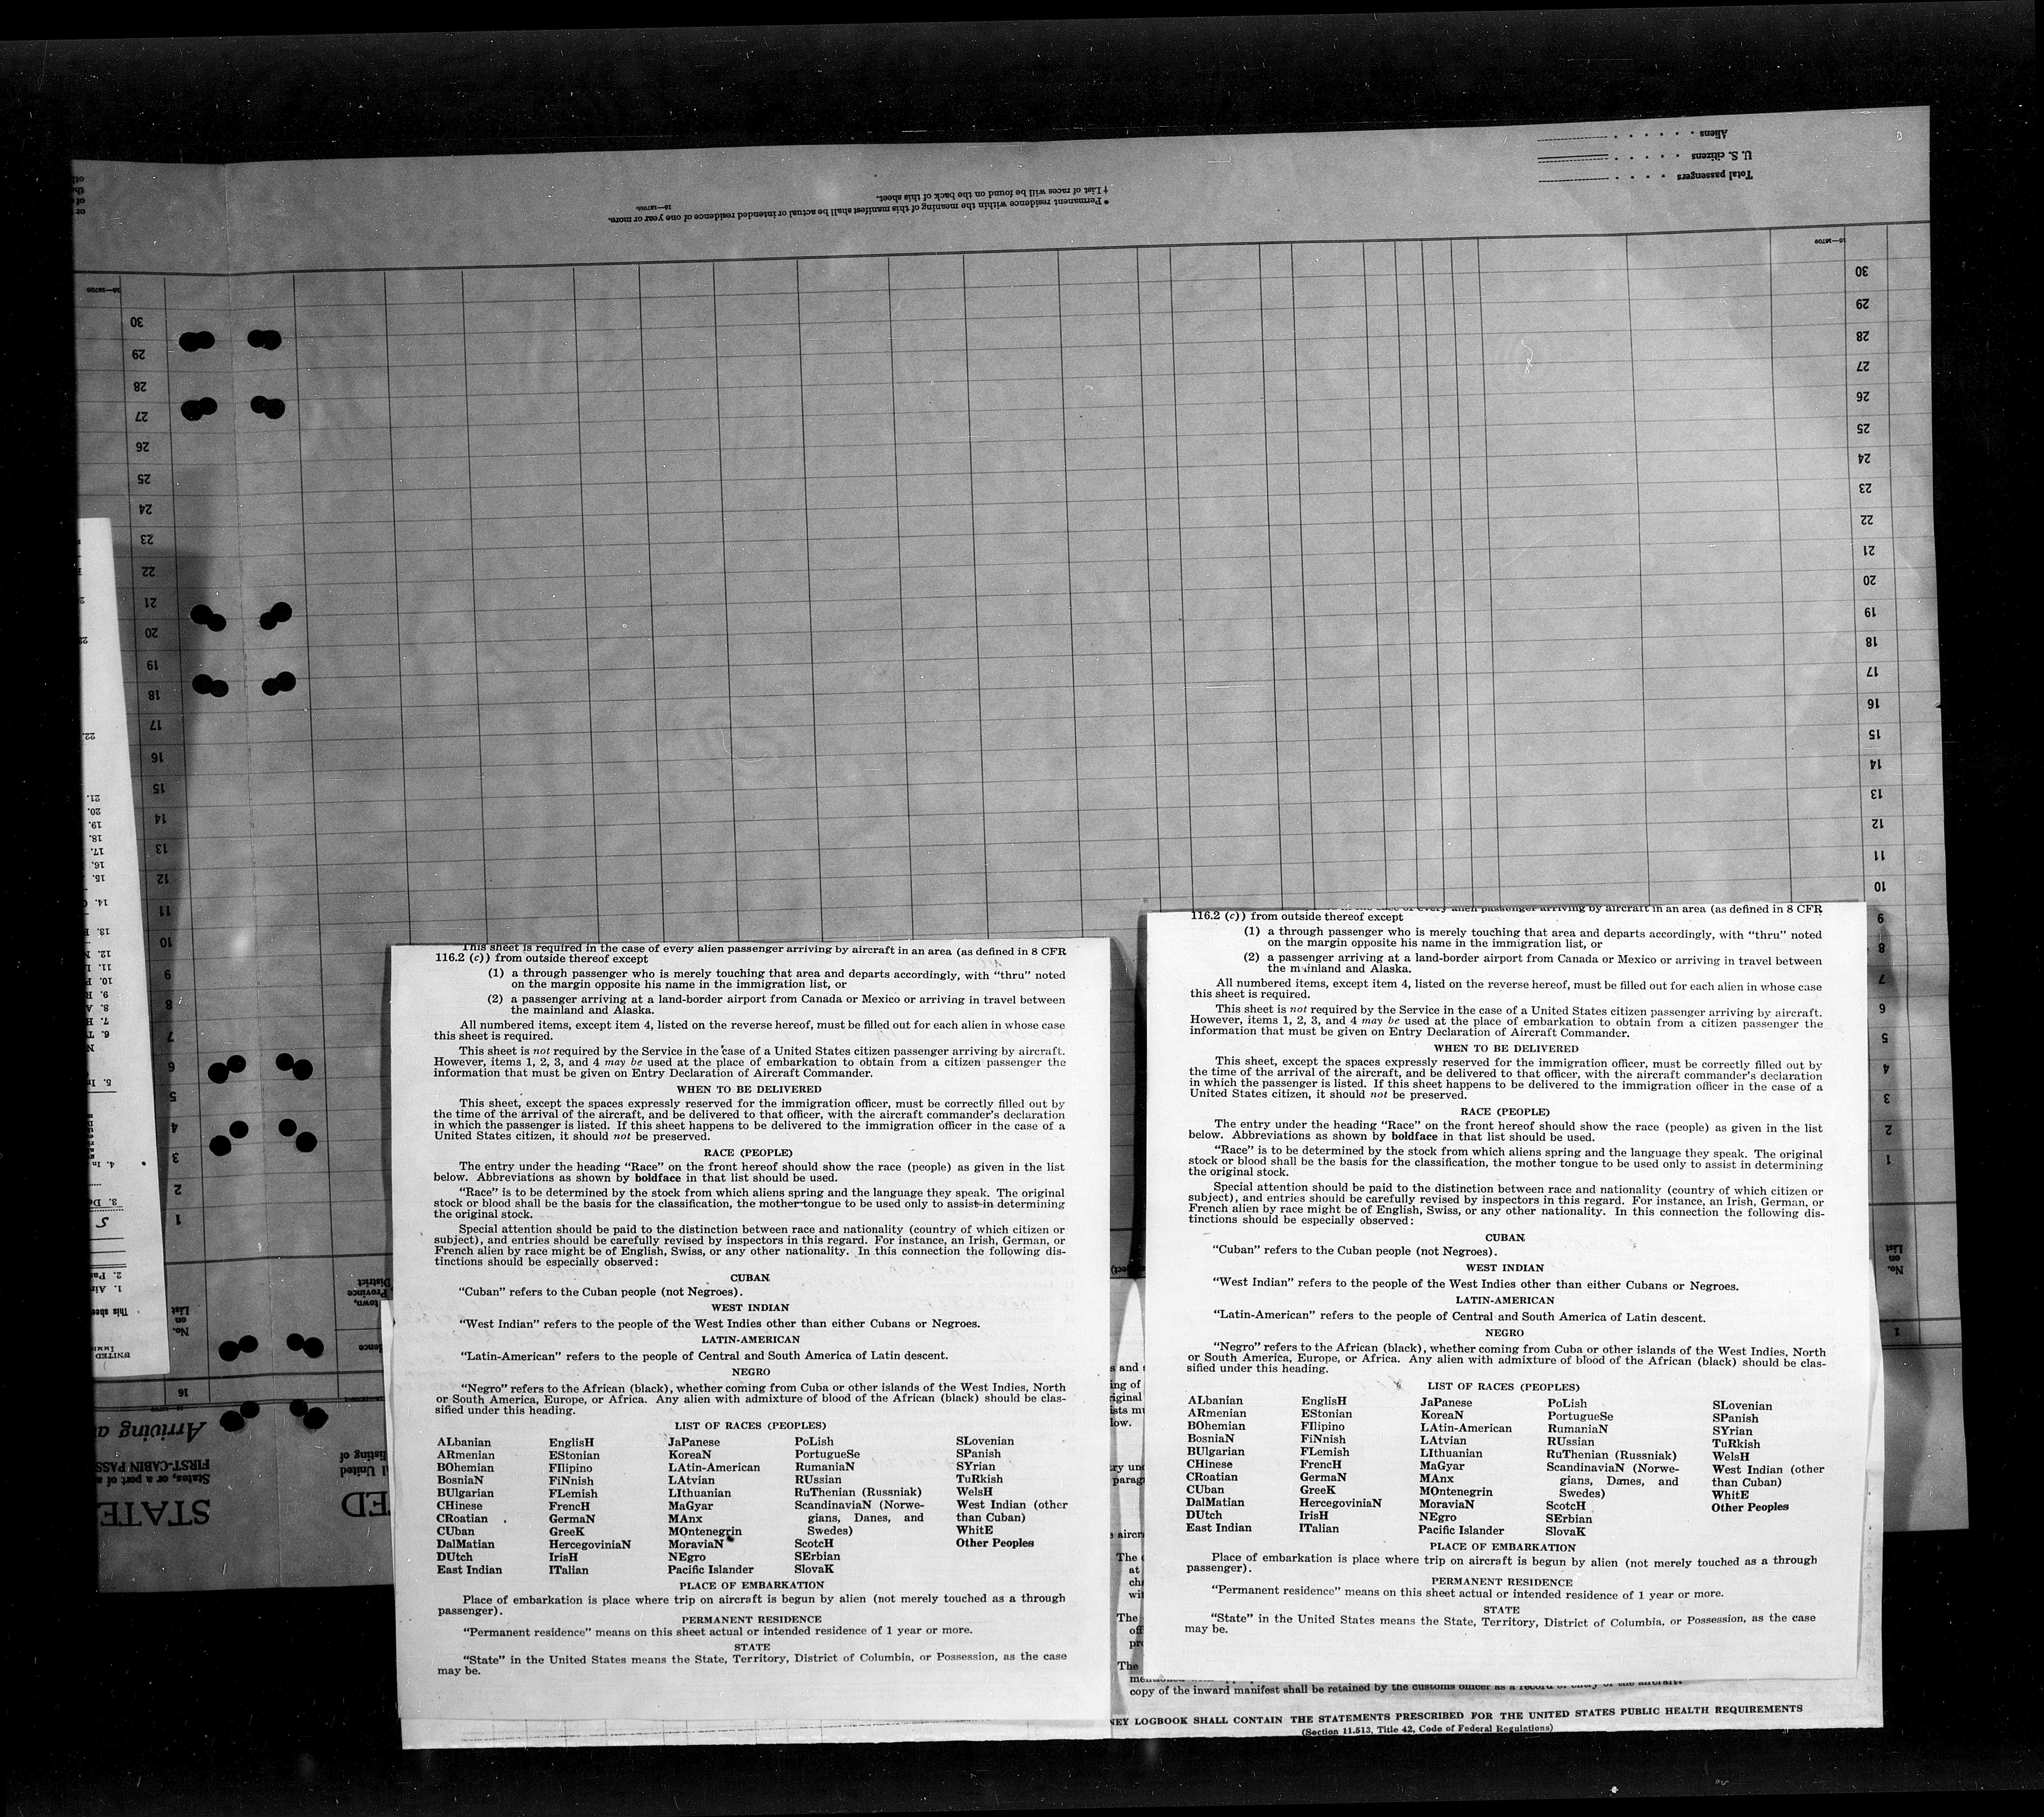 Aliens
U. S. citizens
Total passengers
† List of races will be found on the back of this sheet.
* Permanent residence within the meaning of this manifest shall be actual or intended residence of one year or more.
16—18709
30
29
28
27
26
25
24
23
22
21
20
19
18
17
16
15
14
13
12
11
10
9
8
7
6
5
4
3
2
1
No.
on
List
30
29
28
27
26
25
24
23
22
21
20
19
18
17
16
15
14
13
12
11
10
9
8
7
6
5
4
3
2
1
No.
on
List
16
Arriving a
FIRST-CABIN PASS
States, or a port of a
STATE
This sheet is required in the case of every alien passenger arriving by aircraft in an area (as defined in 8 CFR
116.2 (c)) from outside thereof except
(1) a through passenger who is merely touching that area and departs accordingly, with “thru” noted
on the margin opposite his name in the immigration list, or
(2) a passenger arriving at a land-border airport from Canada or Mexico or arriving in travel between
the mainland and Alaska.
All numbered items, except item 4, listed on the reverse hereof, must be filled out for each alien in whose case
this sheet is required.
This sheet is not required by the Service in the case of a United States citizen passenger arriving by aircraft.
However, items 1, 2, 3, and 4 may be used at the place of embarkation to obtain from a citizen passenger the
information that must be given on Entry Declaration of Aircraft Commander.
WHEN TO BE DELIVERED
This sheet, except the spaces expressly reserved for the immigration officer, must be correctly filled out by
the time of the arrival of the aircraft, and be delivered to that officer, with the aircraft commander’s declaration
in which the passenger is listed. If this sheet happens to be delivered to the immigration officer in the case of a
United States citizen, it should not be preserved.
RACE (PEOPLE)
The entry under the heading “Race” on the front hereof should show the race (people) as given in the list
below. Abbreviations as shown by boldface in that list should be used.
“Race” is to be determined by the stock from which aliens spring and the language they speak. The original
stock or blood shall be the basis for the classification, the mother tongue to be used only to assist in determining
the original stock.
Special attention should be paid to the distinction between race and nationality (country of which citizen or
subject), and entries should be carefully revised by inspectors in this regard. For instance, an Irish, German, or
French alien by race might be of English, Swiss, or any other nationality. In this connection the following dis-
tinctions should be especially observed:
CUBAN
“Cuban” refers to the Cuban people (not Negroes).
WEST INDIAN
“West Indian” refers to the people of the West Indies other than either Cubans or Negroes.
LATIN-AMERICAN
“Latin-American” refers to the people of Central and South America of Latin descent.
NEGRO
“Negro” refers to the African (black), whether coming from Cuba or other islands of the West Indies, North
or South America, Europe, or Africa. Any alien with admixture of blood of the African (black) should be clas-
sified under this heading.
LIST OF RACES (PEOPLES)
ALbanian EnglisH JaPanese PoLish SLovenian
ARmenian EStonian KoreaN PortugueSe SPanish
BOhemian FIlipino LAtin-American RumaniaN SYrian
BosniaN FiNnish LAtvian RUssian TuRkish
BUlgarian FLemish LIthuanian RuThenian (Russniak) WelsH
CHinese FrencH MaGyar ScandinaviaN (Norwe- West Indian (other
CRoatian GermaN MAnx gians, Danes, and than Cuban)
CUban GreeK MOntenegrin Swedes) WhitE
DalMatian HercegoviniaN MoraviaN ScotcH Other Peoples
DUtch IrisH NEgro SErbian
East Indian ITalian Pacific Islander SlovaK
PLACE OF EMBARKATION
Place of embarkation is place where trip on aircraft is begun by alien (not merely touched as a through
passenger).
PERMANENT RESIDENCE
“Permanent residence” means on this sheet actual or intended residence of 1 year or more.
STATE
“State” in the United States means the State, Territory, District of Columbia, or Possession, as the case
may be.
116.2 (c)) from outside thereof except
(1) a through passenger who is merely touching that area and departs accordingly, with “thru” noted
on the margin opposite his name in the immigration list, or
(2) a passenger arriving at a land-border airport from Canada or Mexico or arriving in travel between
the mainland and Alaska.
All numbered items, except item 4, listed on the reverse hereof, must be filled out for each alien in whose case
this sheet is required.
This sheet is not required by the Service in the case of a United States citizen passenger arriving by aircraft.
However, items 1, 2, 3, and 4 may be used at the place of embarkation to obtain from a citizen passenger the
information that must be given on Entry Declaration of Aircraft Commander.
WHEN TO BE DELIVERED
This sheet, except the spaces expressly reserved for the immigration officer, must be correctly filled out by
the time of the arrival of the aircraft, and be delivered to that officer, with the aircraft commander’s declaration
in which the passenger is listed. If this sheet happens to be delivered to the immigration officer in the case of a
United States citizen, it should not be preserved.
RACE (PEOPLE)
The entry under the heading “Race” on the front hereof should show the race (people) as given in the list
below. Abbreviations as shown by boldface in that list should be used.
“Race” is to be determined by the stock from which aliens spring and the language they speak. The original
stock or blood shall be the basis for the classification, the mother tongue to be used only to assist in determining
the original stock.
Special attention should be paid to the distinction between race and nationality (country of which citizen or
subject), and entries should be carefully revised by inspectors in this regard. For instance, an Irish, German, or
French alien by race might be of English, Swiss, or any other nationality. In this connection the following dis-
tinctions should be especially observed:
CUBAN
“Cuban” refers to the Cuban people (not Negroes).
WEST INDIAN
“West Indian” refers to the people of the West Indies other than either Cubans or Negroes.
LATIN-AMERICAN
“Latin-American” refers to the people of Central and South America of Latin descent.
NEGRO
“Negro” refers to the African (black), whether coming from Cuba or other islands of the West Indies, North
or South America, Europe, or Africa. Any alien with admixture of blood of the African (black) should be clas-
sified under this heading.
LIST OF RACES (PEOPLES)
ALbanian EnglisH JaPanese PoLish SLovenian
ARmenian EStonian KoreaN PortugueSe SPanish
BOhemian FIlipino LAtin-American RumaniaN SYrian
BosniaN FiNnish LAtvian RUssian TuRkish
BUlgarian FLemish LIthuanian RuThenian (Russniak) WelsH
CHinese FrencH MaGyar ScandinaviaN (Norwe- West Indian (other
CRoatian GermaN MAnx gians, Danes, and than Cuban)
CUban GreeK MOntenegrin Swedes) WhitE
DalMatian HercegoviniaN MoraviaN ScotcH Other Peoples
DUtch IrisH NEgro SErbian
East Indian ITalian Pacific Islander SlovaK
PLACE OF EMBARKATION
Place of embarkation is place where trip on aircraft is begun by alien (not merely touched as a through
passenger).
PERMANENT RESIDENCE
“Permanent residence” means on this sheet actual or intended residence of 1 year or more.
STATE
“State” in the United States means the State, Territory, District of Columbia, or Possession, as the case
may be.
copy of the inward manifest shall be retained by the customs officer as a record of entry of the aircraft.
NEY LOGBOOK SHALL CONTAIN THE STATEMENTS PRESCRIBED FOR THE UNITED STATES PUBLIC HEALTH REQUIREMENTS
(Section 11.513, Title 42, Code of Federal Regulations)